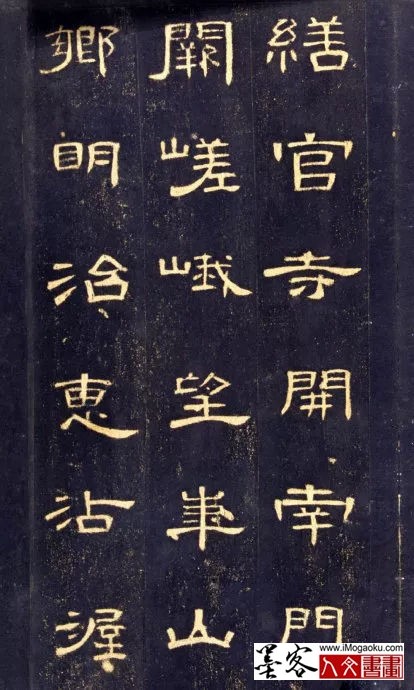 繕官寺開南門
闕嵯峨望華山
鄉明治惠沾渥
www.iMogaoku.com
墨客 人文書畫